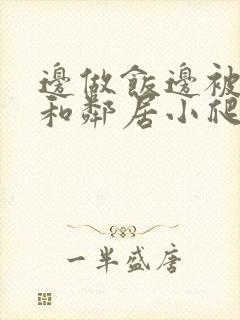 邊做飯邊被
和鄰居小爬
一半盛唐